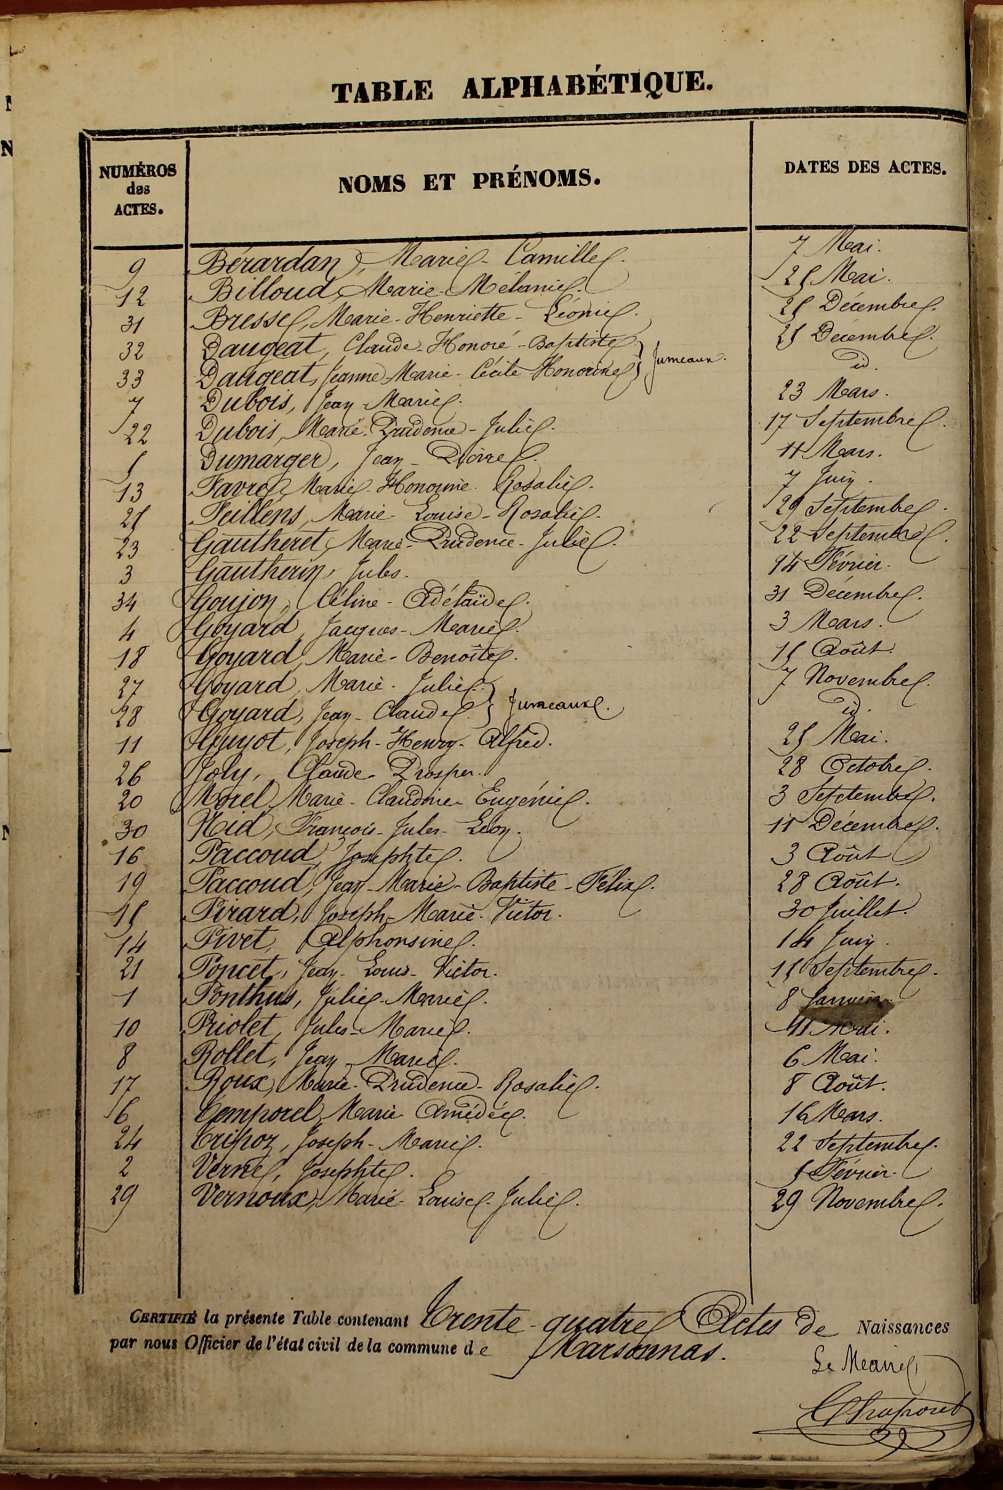 TABLE ALPHABÉTIQUE.
NUMÉROS des ACTES. NOMS ET PRÉNOMS. DATES DES ACTES.
9 Bérardan, Marie-Camille. 7 Mai.
12 Billoud, Marie-Mélanie. 25 Mai.
31 Bresse, Marie-Henriette-Léonie. 25 Décembre.
32 Daugeat, Claude-Honoré-Baptiste } Jumeaux. 25 Décembre.
33 Daugeat, Jeanne-Marie-Cécile Honorine } id.
7 Dubois, Jean-Marie. 23 Mars.
22 Dubois, Marie-Prudence-Julie. 17 Septembre.
5 Dumarger, Jean-Pierre. 11 Mars.
13 Favre, Marie-Honorine Rosalie. 7 Juin.
25 Feillens, Marie-Louise-Rosalie. 29 Septembre.
23 Gautheret, Marie-Prudence-Julie. 22 Septembre.
3 Gautherin, Jules. 14 Février.
34 Goujon, Céline-Adélaïde. 31 Décembre.
4 Goyard, Jacques-Marie. 3 Mars.
18 Goyard, Marie-Benoîte. 15 Août.
27 Goyard, Marie-Julie. } Jumeaux. 7 Novembre.
28 Goyard, Jean-Claude. } id.
11 Guyot, Joseph-Henry-Alfred. 25 Mai.
26 Joly, Claude-Prosper. 28 Octobre.
20 Morel, Marie-Claudine-Eugénie. 3 Septembre.
30 Nid, François-Jules-Léon. 11 Décembre.
16 Paccoud, Josephte. 3 Août
19 Paccoud, Jean-Marie-Baptiste-Félix. 28 Août.
15 Pirard, Joseph-Marie-Victor. 30 Juillet.
14 Pivet, Alphonsine. 14 Juin.
21 Poncet, Jean-Louis-Victor. 15 Septembre.
1 Ponthus, Julie-Marie. 8 Janvier.
10 Priolet, Jules-Marie. 11 Mai.
8 Rollet, Jean-Marie. 6 Mai.
17 Roux, Marie-Prudence-Rosalie. 8 Août.
6 Temporel, Marie Amédée. 16 Mars.
24 Tripoz, Joseph-Marie. 22 Septembre.
2 Verne, Josephte. 5 Février.
29 Vernoux, Marie Louise-Julie. 29 Novembre.
CERTIFIÉ la présente Table contenant Trente-quatre Actes de Naissances
par nous Officier de l'état civil de la commune de Marsonnas.
Le Maire